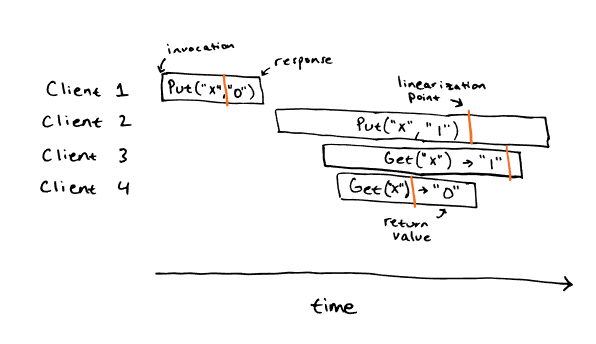 invocation
response
Client 1
Put("x","0")
linearization
point
Client 2
Put("x", "1")
Client 3
Get("x") → "1"
Client 4
Get("x") → "0"
return
value
time